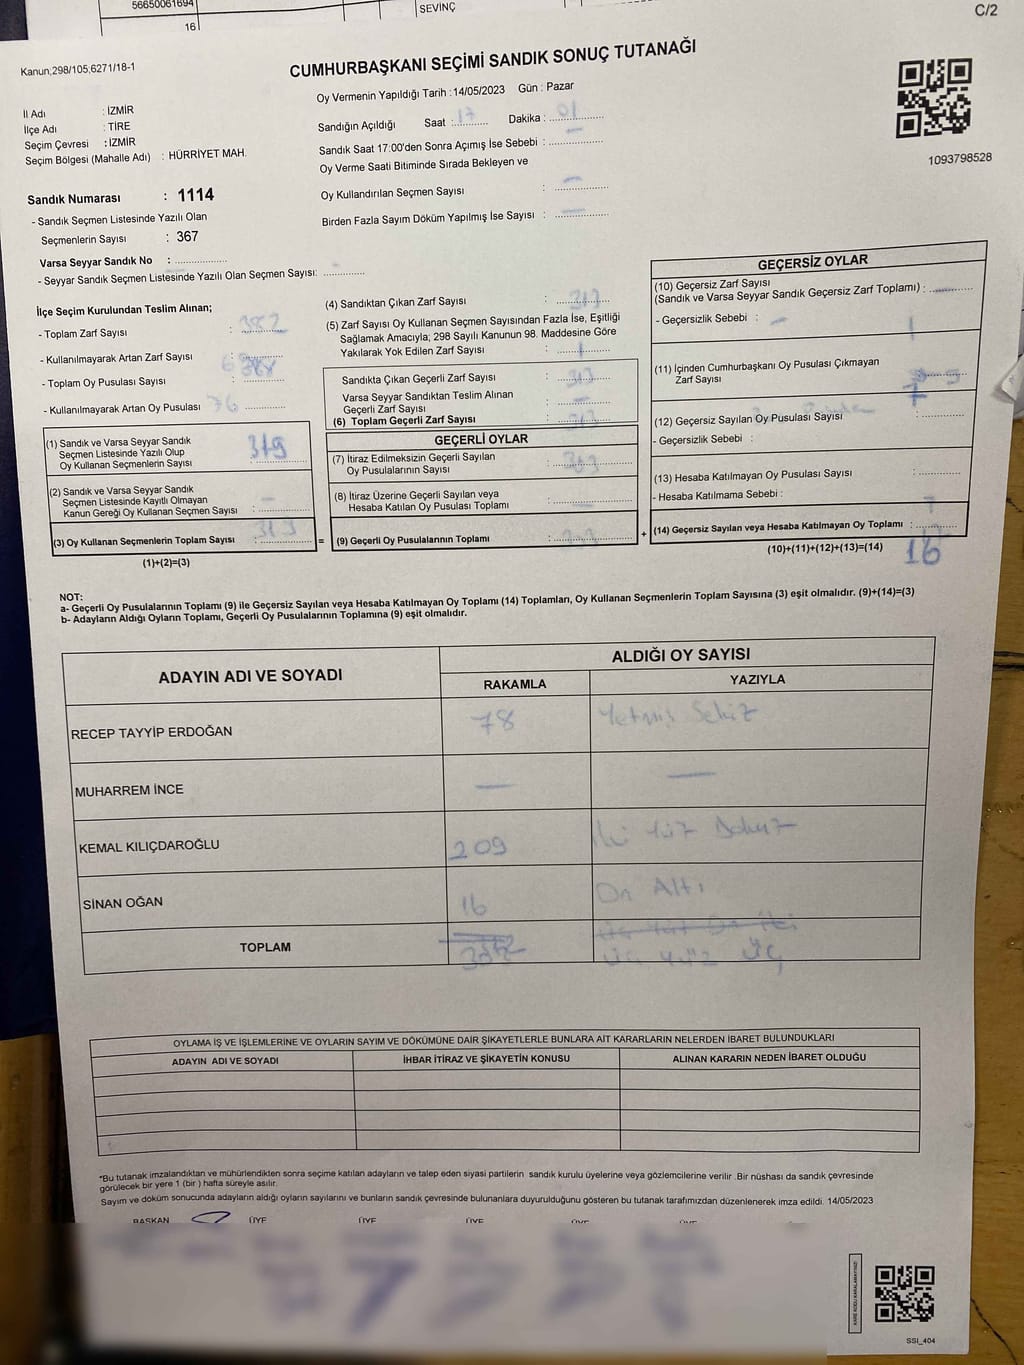 56650061694
SEVİNÇ
16
C/2
Kanun;298/105;6271/18-1
CUMHURBAŞKANI SEÇİMİ SANDIK SONUÇ TUTANAĞI
Oy Vermenin Yapıldığı Tarih :14/05/2023 Gün : Pazar
İl Adı : İZMİR
İlçe Adı : TİRE
Seçim Çevresi : İZMİR
Seçim Bölgesi (Mahalle Adı) : HÜRRİYET MAH.
Sandığın Açıldığı Saat : 17 Dakika : 01
Sandık Saat 17:00'den Sonra Açımış İse Sebebi : —
Oy Verme Saati Bitiminde Sırada Bekleyen ve
Oy Kullandırılan Seçmen Sayısı : —
Birden Fazla Sayım Döküm Yapılmış İse Sayısı : —
1093798528
Sandık Numarası : 1114
- Sandık Seçmen Listesinde Yazılı Olan
Seçmenlerin Sayısı : 367
Varsa Seyyar Sandık No :
- Seyyar Sandık Seçmen Listesinde Yazılı Olan Seçmen Sayısı:
İlçe Seçim Kurulundan Teslim Alınan;
- Toplam Zarf Sayısı : 382
- Kullanılmayarak Artan Zarf Sayısı :
- Toplam Oy Pusulası Sayısı :
- Kullanılmayarak Artan Oy Pusulası 76
(1) Sandık ve Varsa Seyyar Sandık
Seçmen Listesinde Yazılı Olup
Oy Kullanan Seçmenlerin Sayısı : 319
(2) Sandık ve Varsa Seyyar Sandık
Seçmen Listesinde Kayıtlı Olmayan
Kanun Gereği Oy Kullanan Seçmen Sayısı : —
(3) Oy Kullanan Seçmenlerin Toplam Sayısı : =
(1)+(2)=(3)
(4) Sandıktan Çıkan Zarf Sayısı :
(5) Zarf Sayısı Oy Kullanan Seçmen Sayısından Fazla İse, Eşitliği
Sağlamak Amacıyla; 298 Sayılı Kanunun 98. Maddesine Göre
Yakılarak Yok Edilen Zarf Sayısı :
Sandıkta Çıkan Geçerli Zarf Sayısı :
Varsa Seyyar Sandıktan Teslim Alınan
Geçerli Zarf Sayısı : —
(6) Toplam Geçerli Zarf Sayısı :
GEÇERLİ OYLAR
(7) İtiraz Edilmeksizin Geçerli Sayılan
Oy Pusulalarının Sayısı :
(8) İtiraz Üzerine Geçerli Sayılan veya
Hesaba Katılan Oy Pusulası Toplamı : —
(9) Geçerli Oy Pusulalarının Toplamı : +
GEÇERSİZ OYLAR
(10) Geçersiz Zarf Sayısı
(Sandık ve Varsa Seyyar Sandık Geçersiz Zarf Toplamı) : —
- Geçersizlik Sebebi : —
(11) İçinden Cumhurbaşkanı Oy Pusulası Çıkmayan
Zarf Sayısı :
(12) Geçersiz Sayılan Oy Pusulası Sayısı :
- Geçersizlik Sebebi :
(13) Hesaba Katılmayan Oy Pusulası Sayısı :
- Hesaba Katılmama Sebebi :
(14) Geçersiz Sayılan veya Hesaba Katılmayan Oy Toplamı : 16
(10)+(11)+(12)+(13)=(14)
NOT:
a- Geçerli Oy Pusulalarının Toplamı (9) ile Geçersiz Sayılan veya Hesaba Katılmayan Oy Toplamı (14) Toplamları, Oy Kullanan Seçmenlerin Toplam Sayısına (3) eşit olmalıdır. (9)+(14)=(3)
b- Adayların Aldığı Oyların Toplamı, Geçerli Oy Pusulalarının Toplamına (9) eşit olmalıdır.
ADAYIN ADI VE SOYADI ALDIĞI OY SAYISI
RAKAMLA YAZIYLA
RECEP TAYYİP ERDOĞAN 78 Yetmiş Sekiz
MUHARREM İNCE — —
KEMAL KILIÇDAROĞLU 209 İki Yüz Dokuz
SİNAN OĞAN 16 On Altı
TOPLAM Üç Yüz On İki
Üç yüz ÜÇ
OYLAMA İŞ VE İŞLEMLERİNE VE OYLARIN SAYIM VE DÖKÜMÜNE DAİR ŞİKAYETLERLE BUNLARA AİT KARARLARIN NELERDEN İBARET BULUNDUKLARI
ADAYIN ADI VE SOYADI İHBAR İTİRAZ VE ŞİKAYETİN KONUSU ALINAN KARARIN NEDEN İBARET OLDUĞU
*Bu tutanak imzalandıktan ve mühürlendikten sonra seçime katılan adayların ve talep eden siyasi partilerin sandık kurulu üyelerine veya gözlemcilerine verilir .Bir nüshası da sandık çevresinde
görülecek bir yere 1 (bir ) hafta süreyle asılır.
Sayım ve döküm sonucunda adayların aldığı oyların sayılarını ve bunların sandık çevresinde bulunanlara duyurulduğunu gösteren bu tutanak tarafımızdan düzenlenerek imza edildi. 14/05/2023
BAŞKAN ÜYE ÜYE ÜYE ÜYE ÜYE
KARE KODU KARALAMAYINIZ!
SSI_404